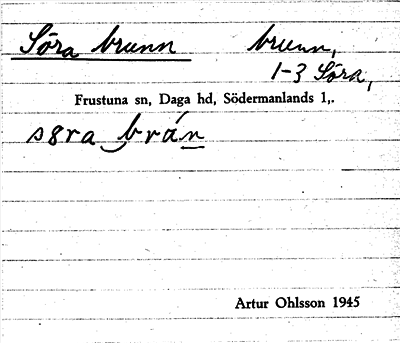 Söra brunn brunn,
1-3 Söra,
Frustuna sn, Daga hd, Södermanlands l,.
s8ra brán
Artur Ohlsson 1945